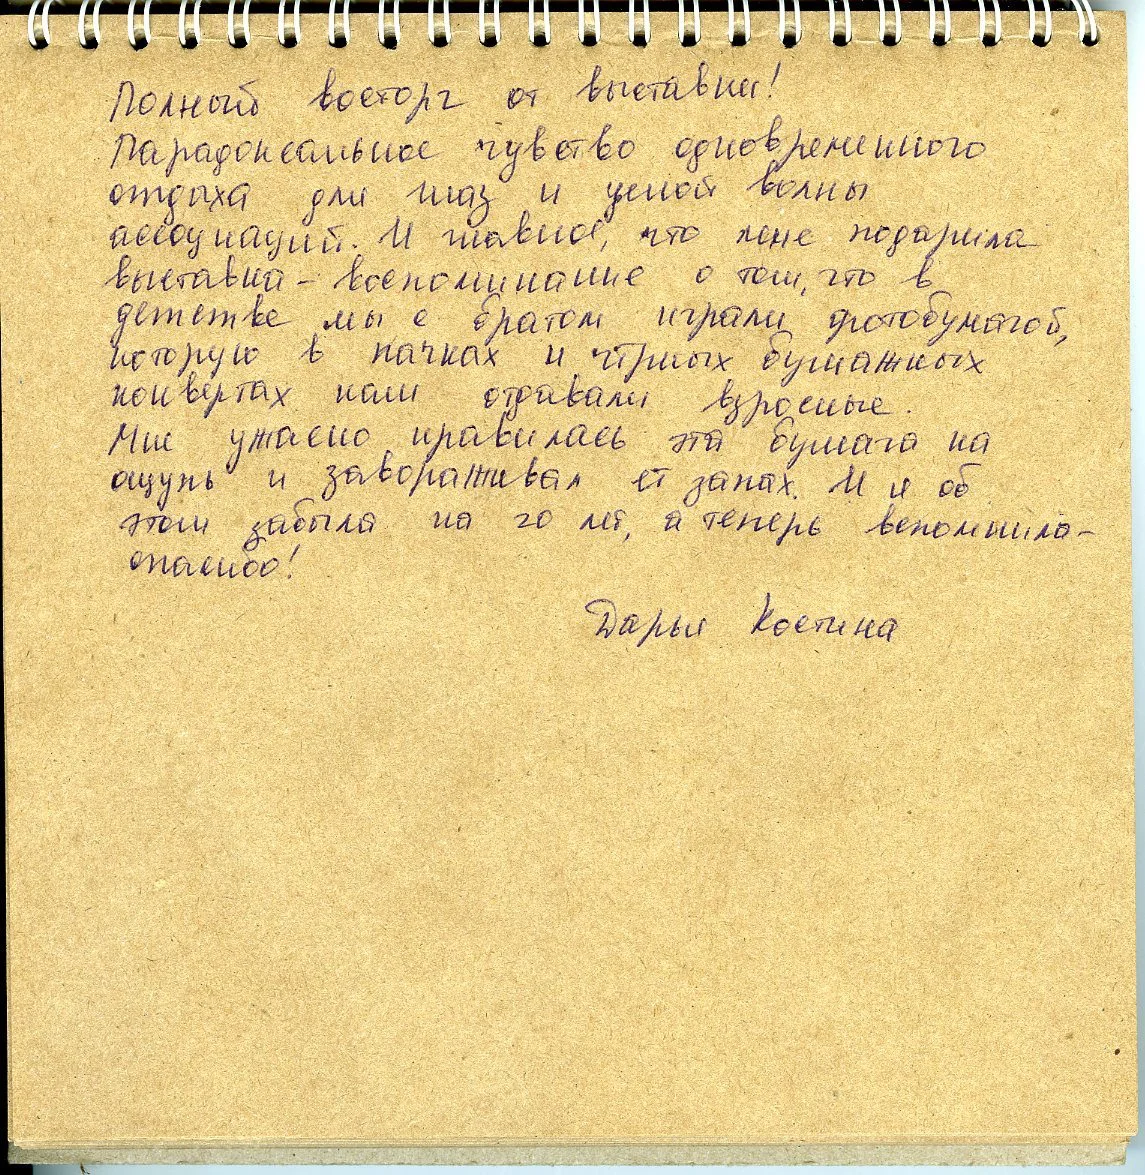 Полный восторг от выставки!
Парадоксальное чувство одновременного
отдыха для глаз и целой волны
ассоциаций. И главное, что мне подарила
выставка – воспоминание о том, что в
детстве мы с братом играли фотобумагой,
которую в пачках и чёрных бумажных
конвертах нам отдавали взрослые.
Мне ужасно нравилась эта бумага на
ощупь и завораживал её запах. И я об
этом забыла на 20 лет, а теперь вспомнила –
спасибо!
Дарья Костина